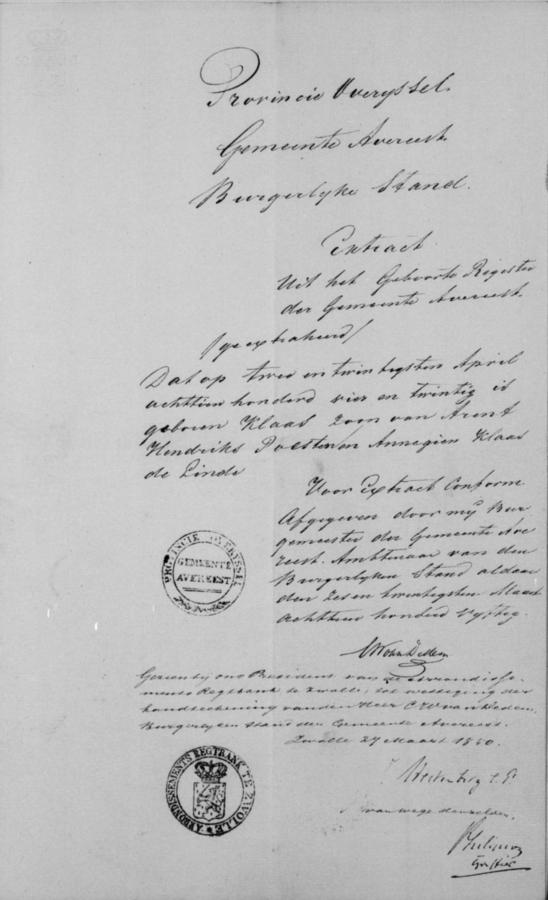 Provincie Overyssel.
Gemeente Avereest.
Burgerlyke Stand.
Extract
Uit het Geboorte Register
der Gemeente Avereest.
/geextraheerd/
Dat op twee en twintigsten April
achttien honderd vier en twintig is
geboren Klaas Zoon van Arent
Hendriks Poesten en Annegien Klaas
de Linde
Voor Extract Conform
Afgegeven door my Bur
gemeester der Gemeente Ave
reest. Ambtenaar van den
Burgerlyken Stand aldaar
den zes en twintigsten Maart
achttien honderd vyftig.
PROVINCIE OVERYSSEL
GEMEENTE
AVEREEST.
Gezien by ons President van de Arrondisse-
ments Regtbank te Zwolle, tot wettiging der
handteekening van den Heer
Burgerlyken Stand der Gemeente Avereest.
Zwolle 27 Maart 1850.
ARRONDISSEMENTS REGTBANK TE ZWOLLE
van wege denzelven,
Griffier